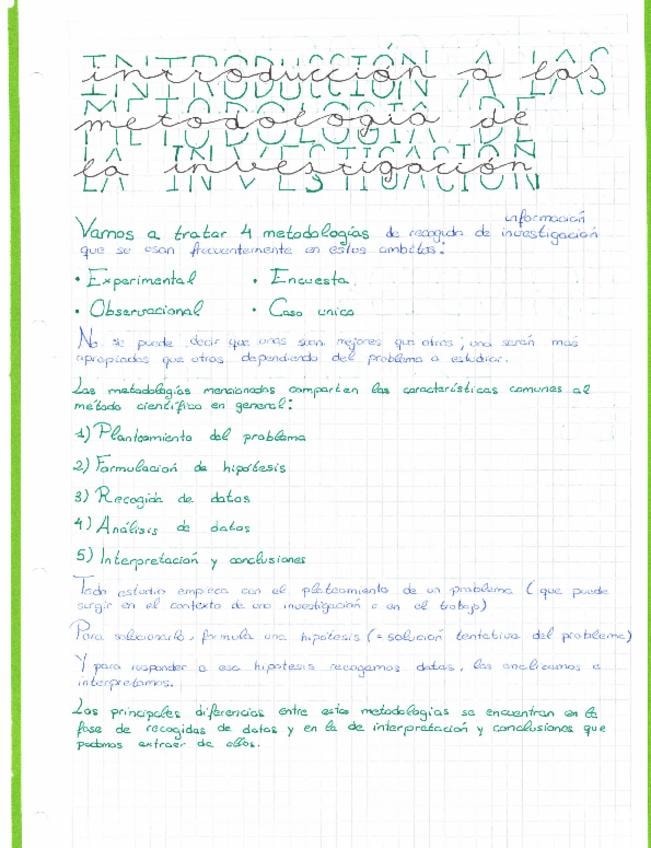 INTRODUCCIÓN A LAS
introducción a las
METODOLOGÍA DE
metodología de
LA INVESTIGACIÓN
la investigación
información
Vamos a tratar 4 metodologías de recogida de investigación
que se usan frecuentemente en estos ámbitos:
• Experimental • Encuesta
• Observacional • Caso unico
No se puede decir que unas sean mejores que otras; una serán más
apropiadas que otras dependiendo del problema a estudiar.
Las metodologías mencionadas comparten las características comunes al
método científico en general:
1) Planteamiento del problema
2) Formulación de hipótesis
3) Recogida de datos
4) Análisis de datos
5) Interpretación y conclusiones
Todo estudio empieza con el plateamiento de un problema (que puede
surgir en el contexto de una investigación o en el trabajo)
Para solucionarlo, formula una hipótesis (= solución tentativa del problema)
Y para responder a esa hipótesis recogemos datos, los analizamos e
interpretamos.
Las principales diferencias entre estas metodologías se encuentran en la
fase de recogidas de datos y en la de interpretación y conclusiones que
podamos extraer de ellos.